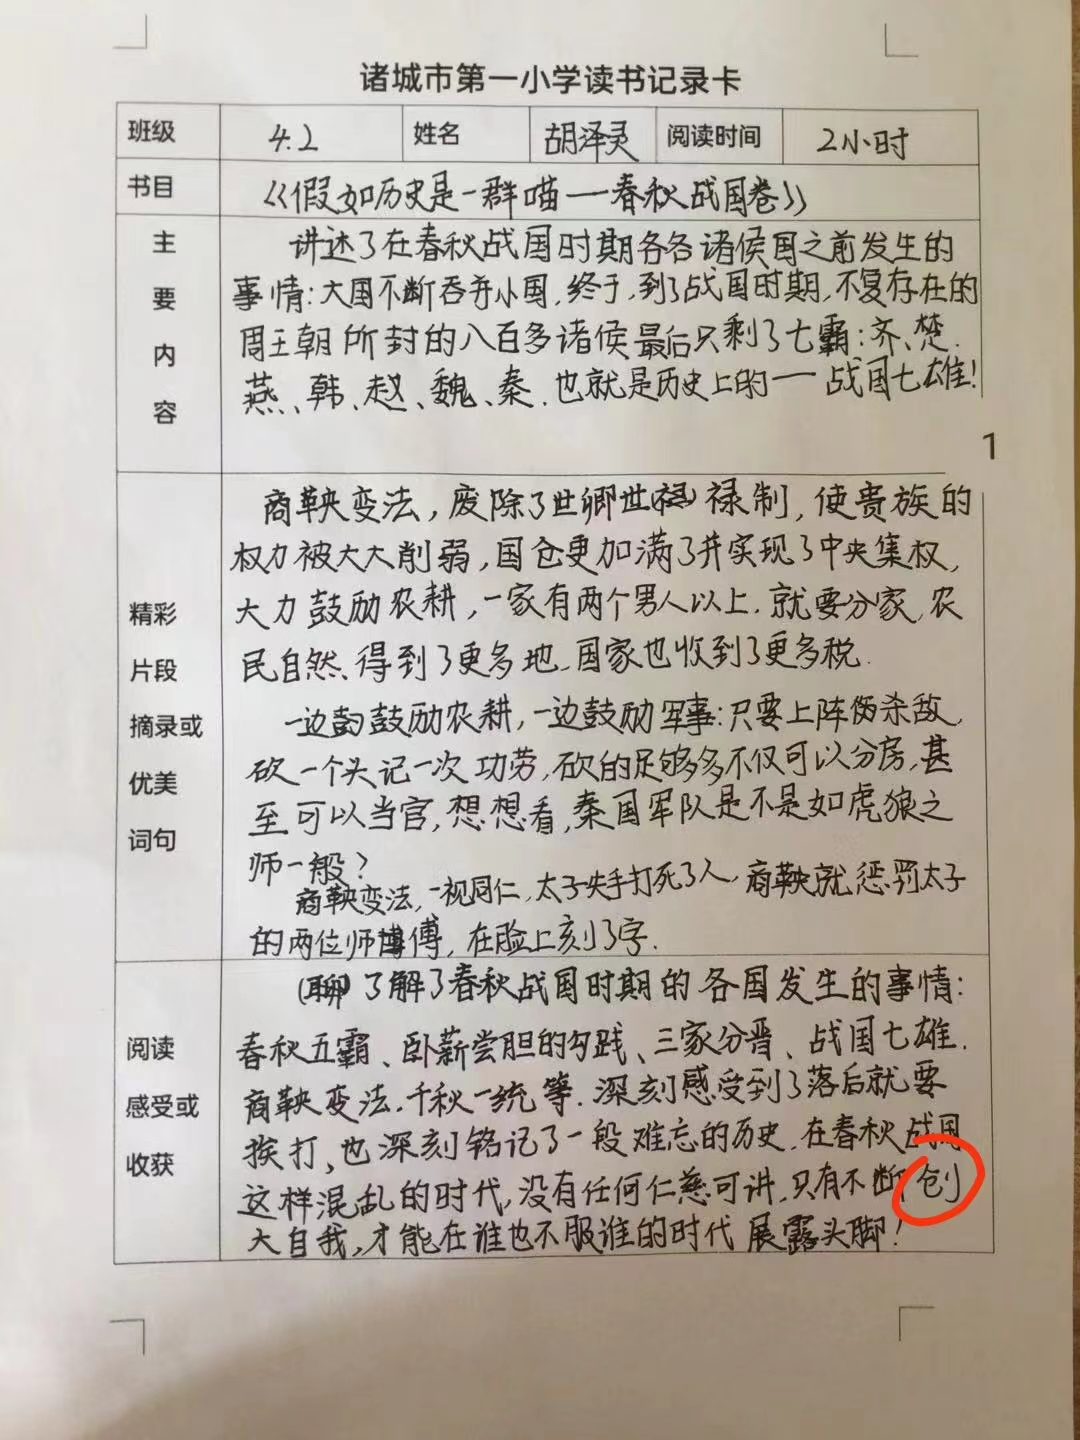 诸城市第一小学读书记录卡
班级 4.2 姓名 胡泽灵 阅读时间 2小时
书目 《假如历史是一群喵——春秋战国卷》
主要内容
讲述了在春秋战国时期各各诸侯国之前发生的
事情:大国不断吞并小国,终于,到了战国时期,不复存在的
周王朝所封的八百多诸侯最后只剩了七霸:齐、楚.
燕、韩、赵、魏、秦.也就是历史上的——战国七雄!
1
精彩
片段
摘录或
优美
词句
商鞅变法,废除了世卿世禄制,使贵族的
权力被大大削弱,国仓更加满了并实现了中央集权,
大力鼓励农耕,一家有两个男人以上.就要分家,农
民自然.得到了更多地.国家也收到了更多税.
一边鼓励农耕,一边鼓励军事:只要上阵杀敌,
砍一个头记一次功劳,砍的足够多不仅可以分房,甚
至可以当官,想想看,秦国军队是不是如虎狼之
师一般?
商鞅变法,一视同仁,太子失手打死了人,商鞅就惩罚太子
的两位师傅,在脸上刻了字.
阅读
感受或
收获
(聊)了解了春秋战国时期的各国发生的事情:
春秋五霸、卧薪尝胆的勾践、三家分晋、战国七雄.
商鞅变法.千秋一统等.深刻感受到了落后就要
挨打,也深刻铭记了一段难忘的历史.在春秋战国
这样混乱的时代,没有任何仁慈可讲,只有不断创
大自我,才能在谁也不服谁的时代展露头脚!